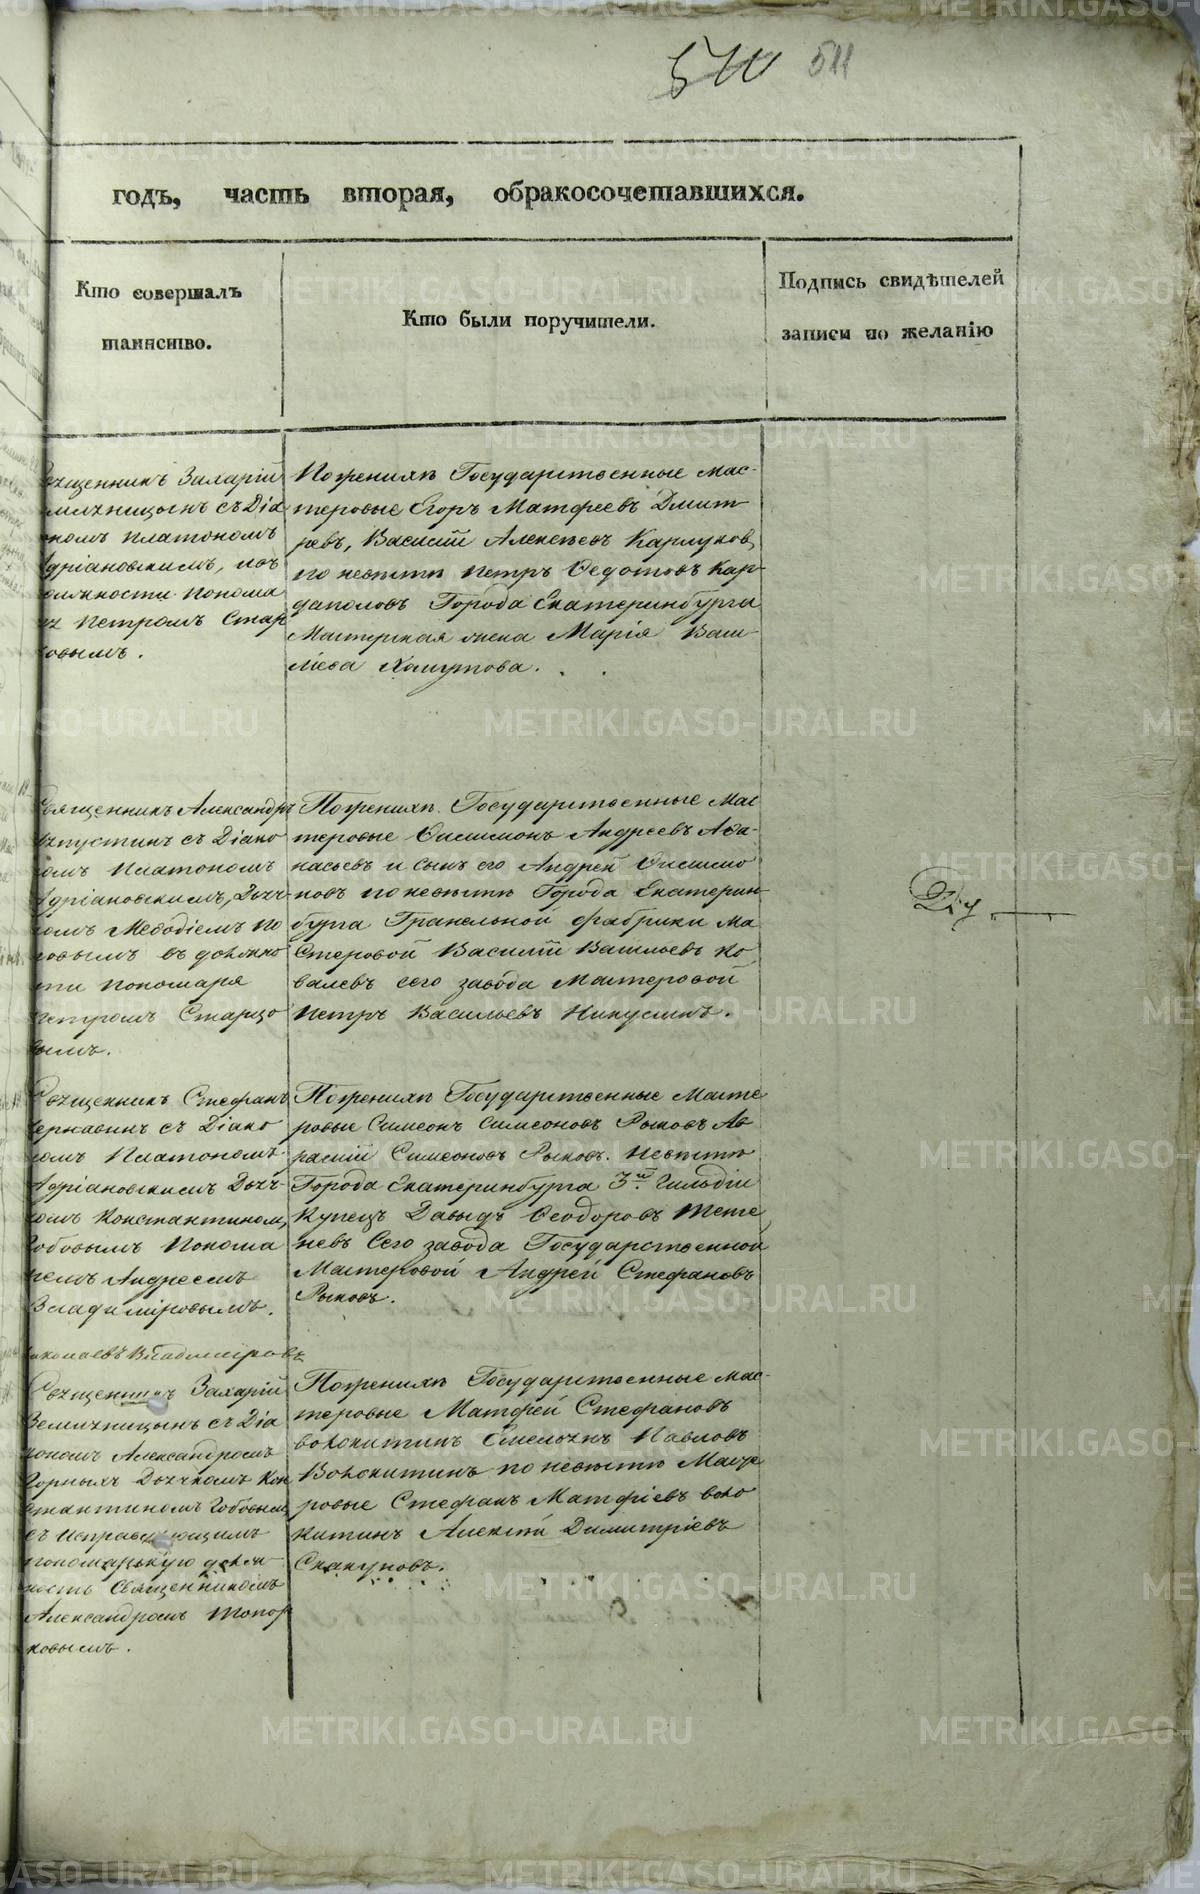 510 511
годъ, часть вторая, обракосочетавшихся.
Кто совершалъ
таинство.
Кто были поручители.
Подпись свидѣтелей
записи по желанію
Священникъ Захарій
съ Діа
кономъ Платономъ
Адріановскимъ, въ
должности понома
ря Петромъ Стар
цовымъ.
По женихѣ Государственные мас-
теровые Егоръ Матфеевъ Дмит-
ревъ, Василій Алексѣевъ Карлуков,
по невѣстѣ Петръ Ѳедотовъ Кар-
даполовъ Города Екатеринбурга
Мастерская жена Марія Васи-
лiева Хомутова.
Священникъ Александръ
съ Діако
номъ Платономъ
Адріановскимъ, Дьяч-
комъ Меѳодіемъ По
повымъ въ должно
сти пономаря
Петромъ Старцо
вымъ.
По женихѣ Государственные мас
теровые Онисимонъ Андреевъ Аѳа-
насьевъ и сынъ его Андрей Онисимо
новъ по невѣстѣ Города Екатерин-
бурга Гранильной фабрики ма
стеровой Василій Васильевъ Ко
валевъ сего завода Мастеровой
Петръ Васильевъ Никулинъ.
Священникъ Стефанъ
съ Діако
номъ Платономъ
Адріановскимъ Дьяч-
комъ Константином,
понома
ремъ Андреемъ
Владиміровымъ.
По женихѣ Государственные Масте
ровые Симеонъ Симеоновъ Рыковъ Аѳ
расій Симеоновъ Рыковъ. Невѣстѣ
Города Екатеринбурга 3й Гильдіи
Купецъ Давыдъ Ѳеодоровъ Тете
невъ Сего завода Государственной
Мастеровой Андрей Стефановъ
Рыковъ.
Николаевъ Владиміровъ
Священникъ Захарій
съ Діа
кономъ Александромъ
Горныхъ Дьячкомъ Кон
стантиномъ
съ Исправляющимъ
пономарскую долж-
ность Священникомъ
Александромъ Топор
ковымъ.
По женихѣ Государственные мас-
теровые Матфей Стефановъ
Волокитинъ Емельянъ Павловъ
Волокитинъ по невѣстѣ Масте
ровые Стефанъ Матфіевъ Воло
китинъ Алексѣй Димитріевъ
Скакуновъ.